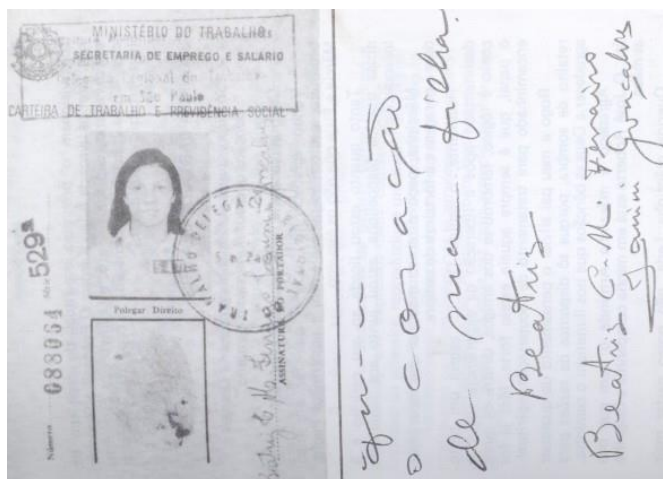 MINISTÉRIO DO TRABALHO
SECRETARIA DE EMPREGO E SALÁRIO
Delegacia Regional do Trabalho
em São Paulo
CARTEIRA DE TRABALHO E PREVIDÊNCIA SOCIAL
Número 088064 Série 529ª
Polegar Direito
ASSINATURA DO PORTADOR
o coração
de ma filha
Beatris
Beatris C. M. Ferreiro
Gonçalves